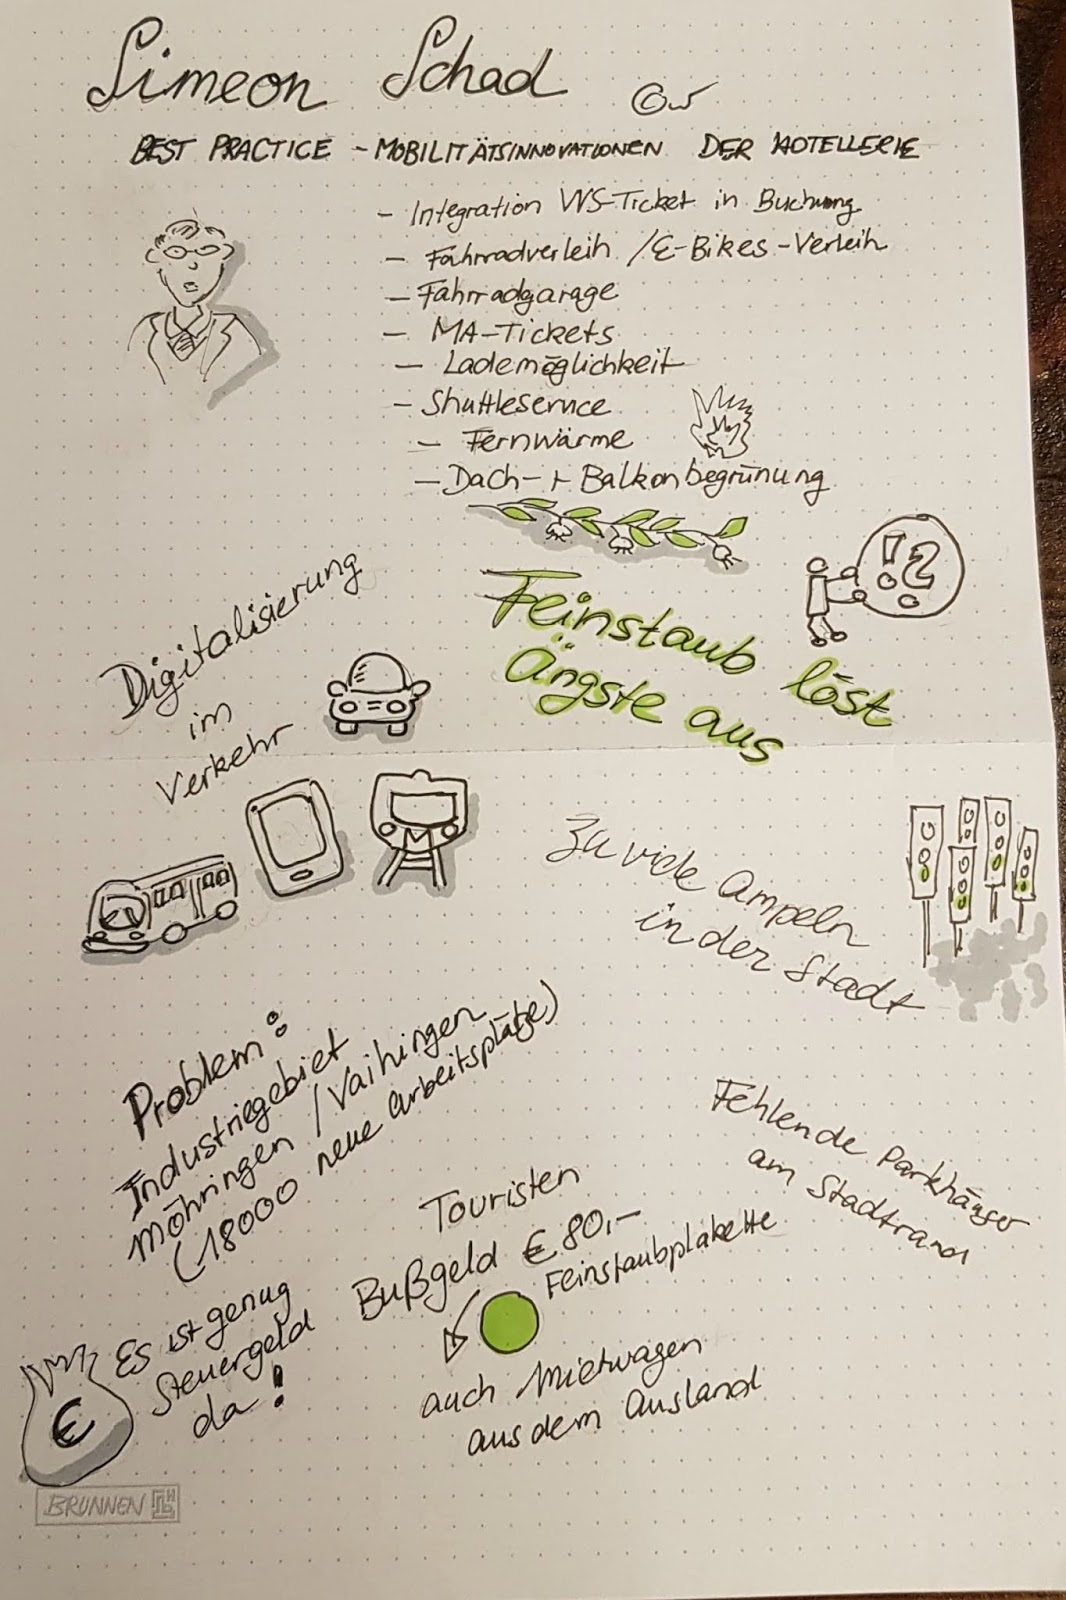 Simeon Schad
BEST PRACTICE - MOBILITÄTSINNOVATIONEN DER HOTELLERIE
- Integration VVS-Ticket in Buchung
- Fahrradverleih / E-Bikes-Verleih
- Fahrradgarage
- MA-Tickets
- Lademöglichkeit
- Shuttleservice
- Fernwärme
- Dach- + Balkonbegrünung
!?
Feinstaub löst
Ängste aus
Digitalisierung
im
Verkehr
Zu viele Ampeln
in der Stadt
Problem:
Industriegebiet
Möhringen / Vaihingen
(18000 neue Arbeitsplätze)
Fehlende Parkhäuser
am Stadtrand
Touristen
Bußgeld € 80,-
Feinstaubplakette
auch Mietwagen
aus dem Ausland
Es ist genug
Steuergeld
da!
€
BRUNNEN